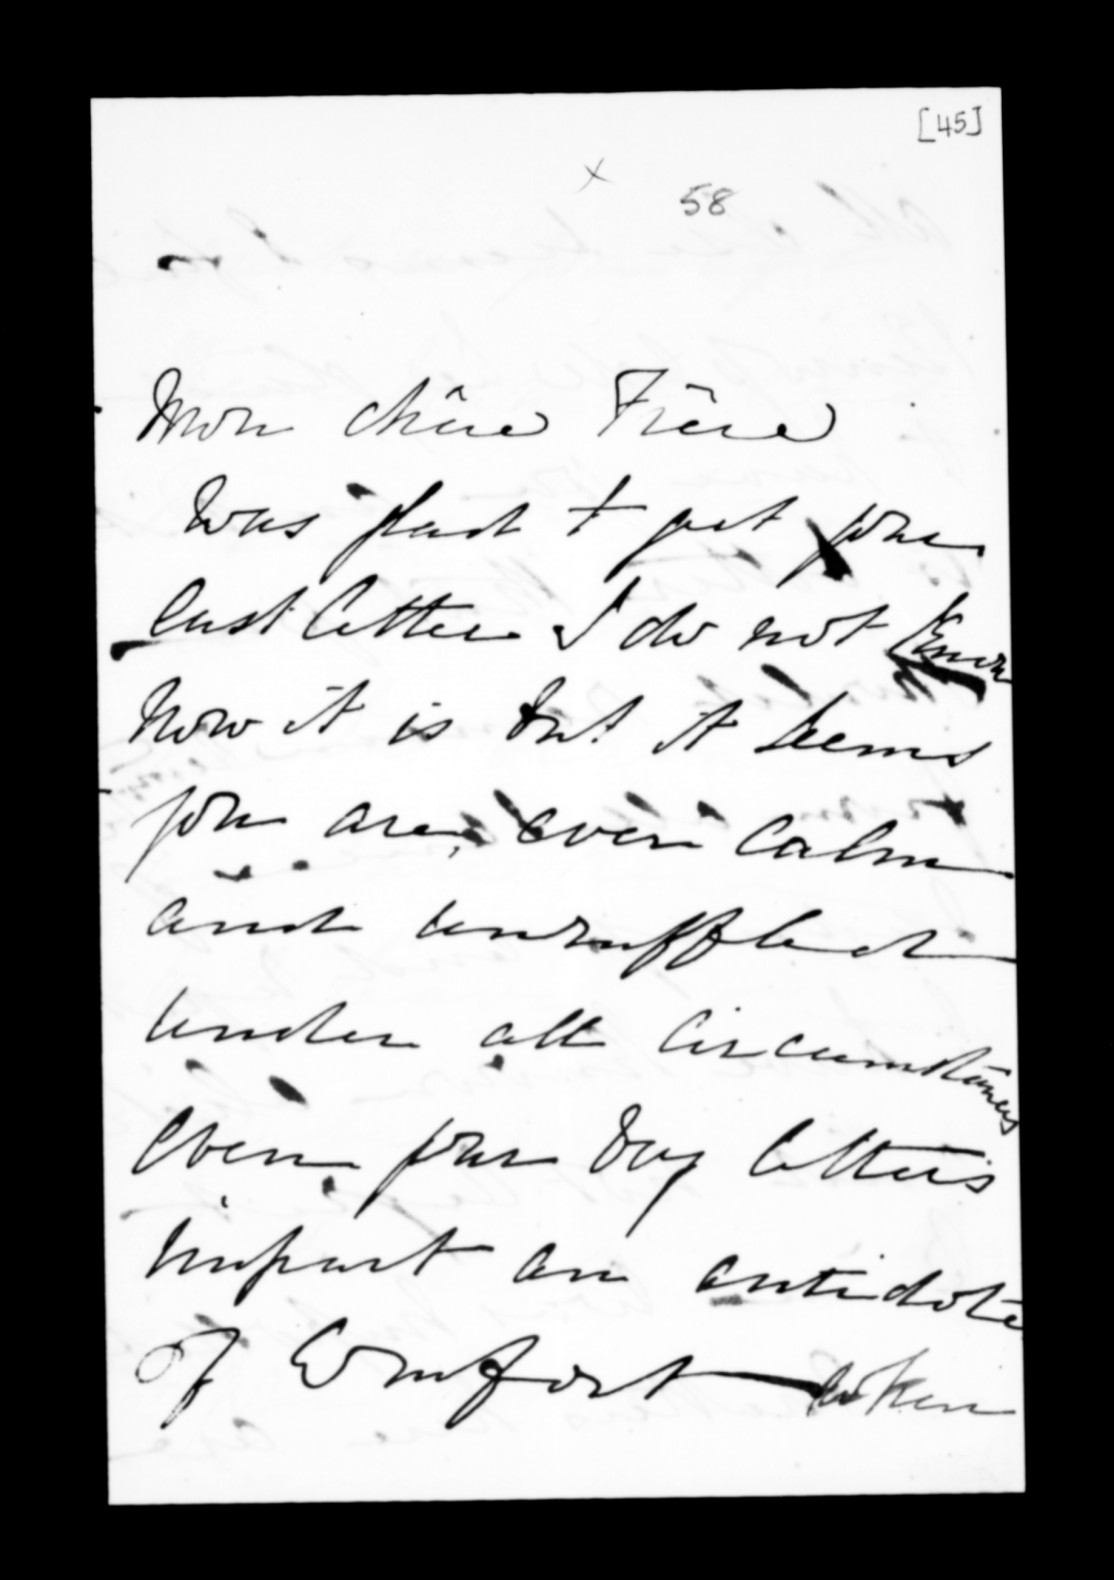 [45]
x
58
Mon chêre Frêre
Was glad t get your
last letter I do not know
how it is but it seems
you are, even calm
and unruffled
under all circumstances
Even your Day letters
impart an antidote
of Comfort when